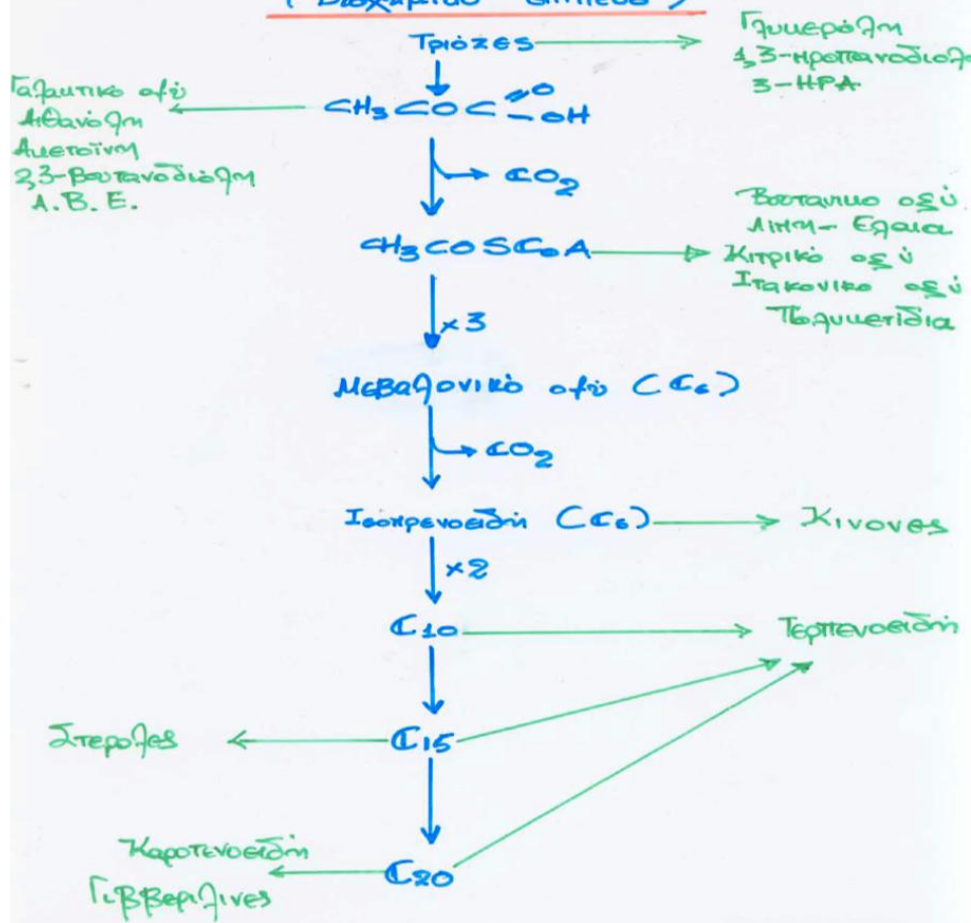 (Βιοχημικό επίπεδο)
Τριόζες
Γλυκερόλη
1,3-προπανοδιόλη
3-HPA
CH3COC=O-OH
Γαλακτικό οξύ
Αιθανόλη
Ακετοΐνη
2,3-βουτανοδιόλη
A.B.E.
CO2
CH3COSCoA
Βουτανικό οξύ
Λίπη-Έλαια
Κιτρικό οξύ
Ιτακονικό οξύ
Πολυκετίδια
x3
Μεβαλονικό οξύ (C6)
CO2
Ισοπρενοειδή (C5)
Κινόνες
x2
C10
Τερπενοειδή
Στερόλες
C15
Καροτενοειδή
Γιββεριλίνες
C20